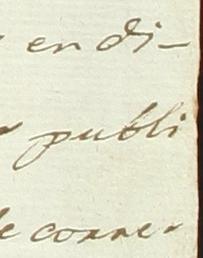 en di-
publi
de corre-